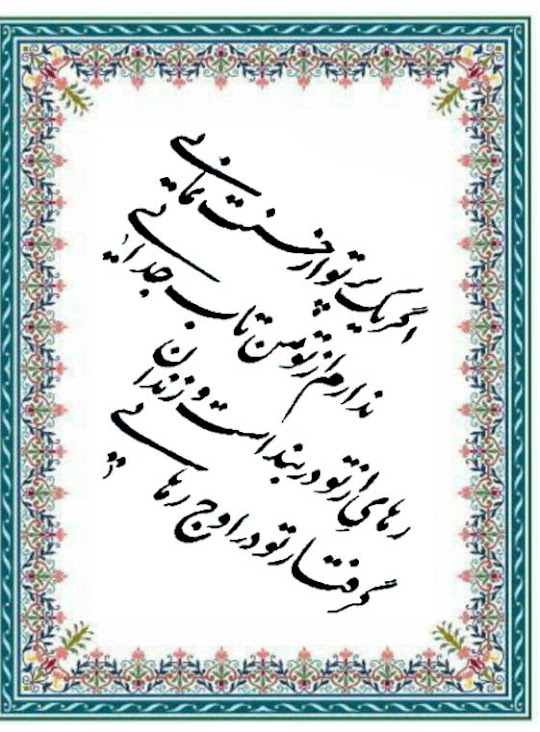 اگر یک پرتو از حسنت نمایی
ندارم از تو من تاب جدایی
رهای از تو در بند است و زندان
گرفتار تو در اوج رهایی